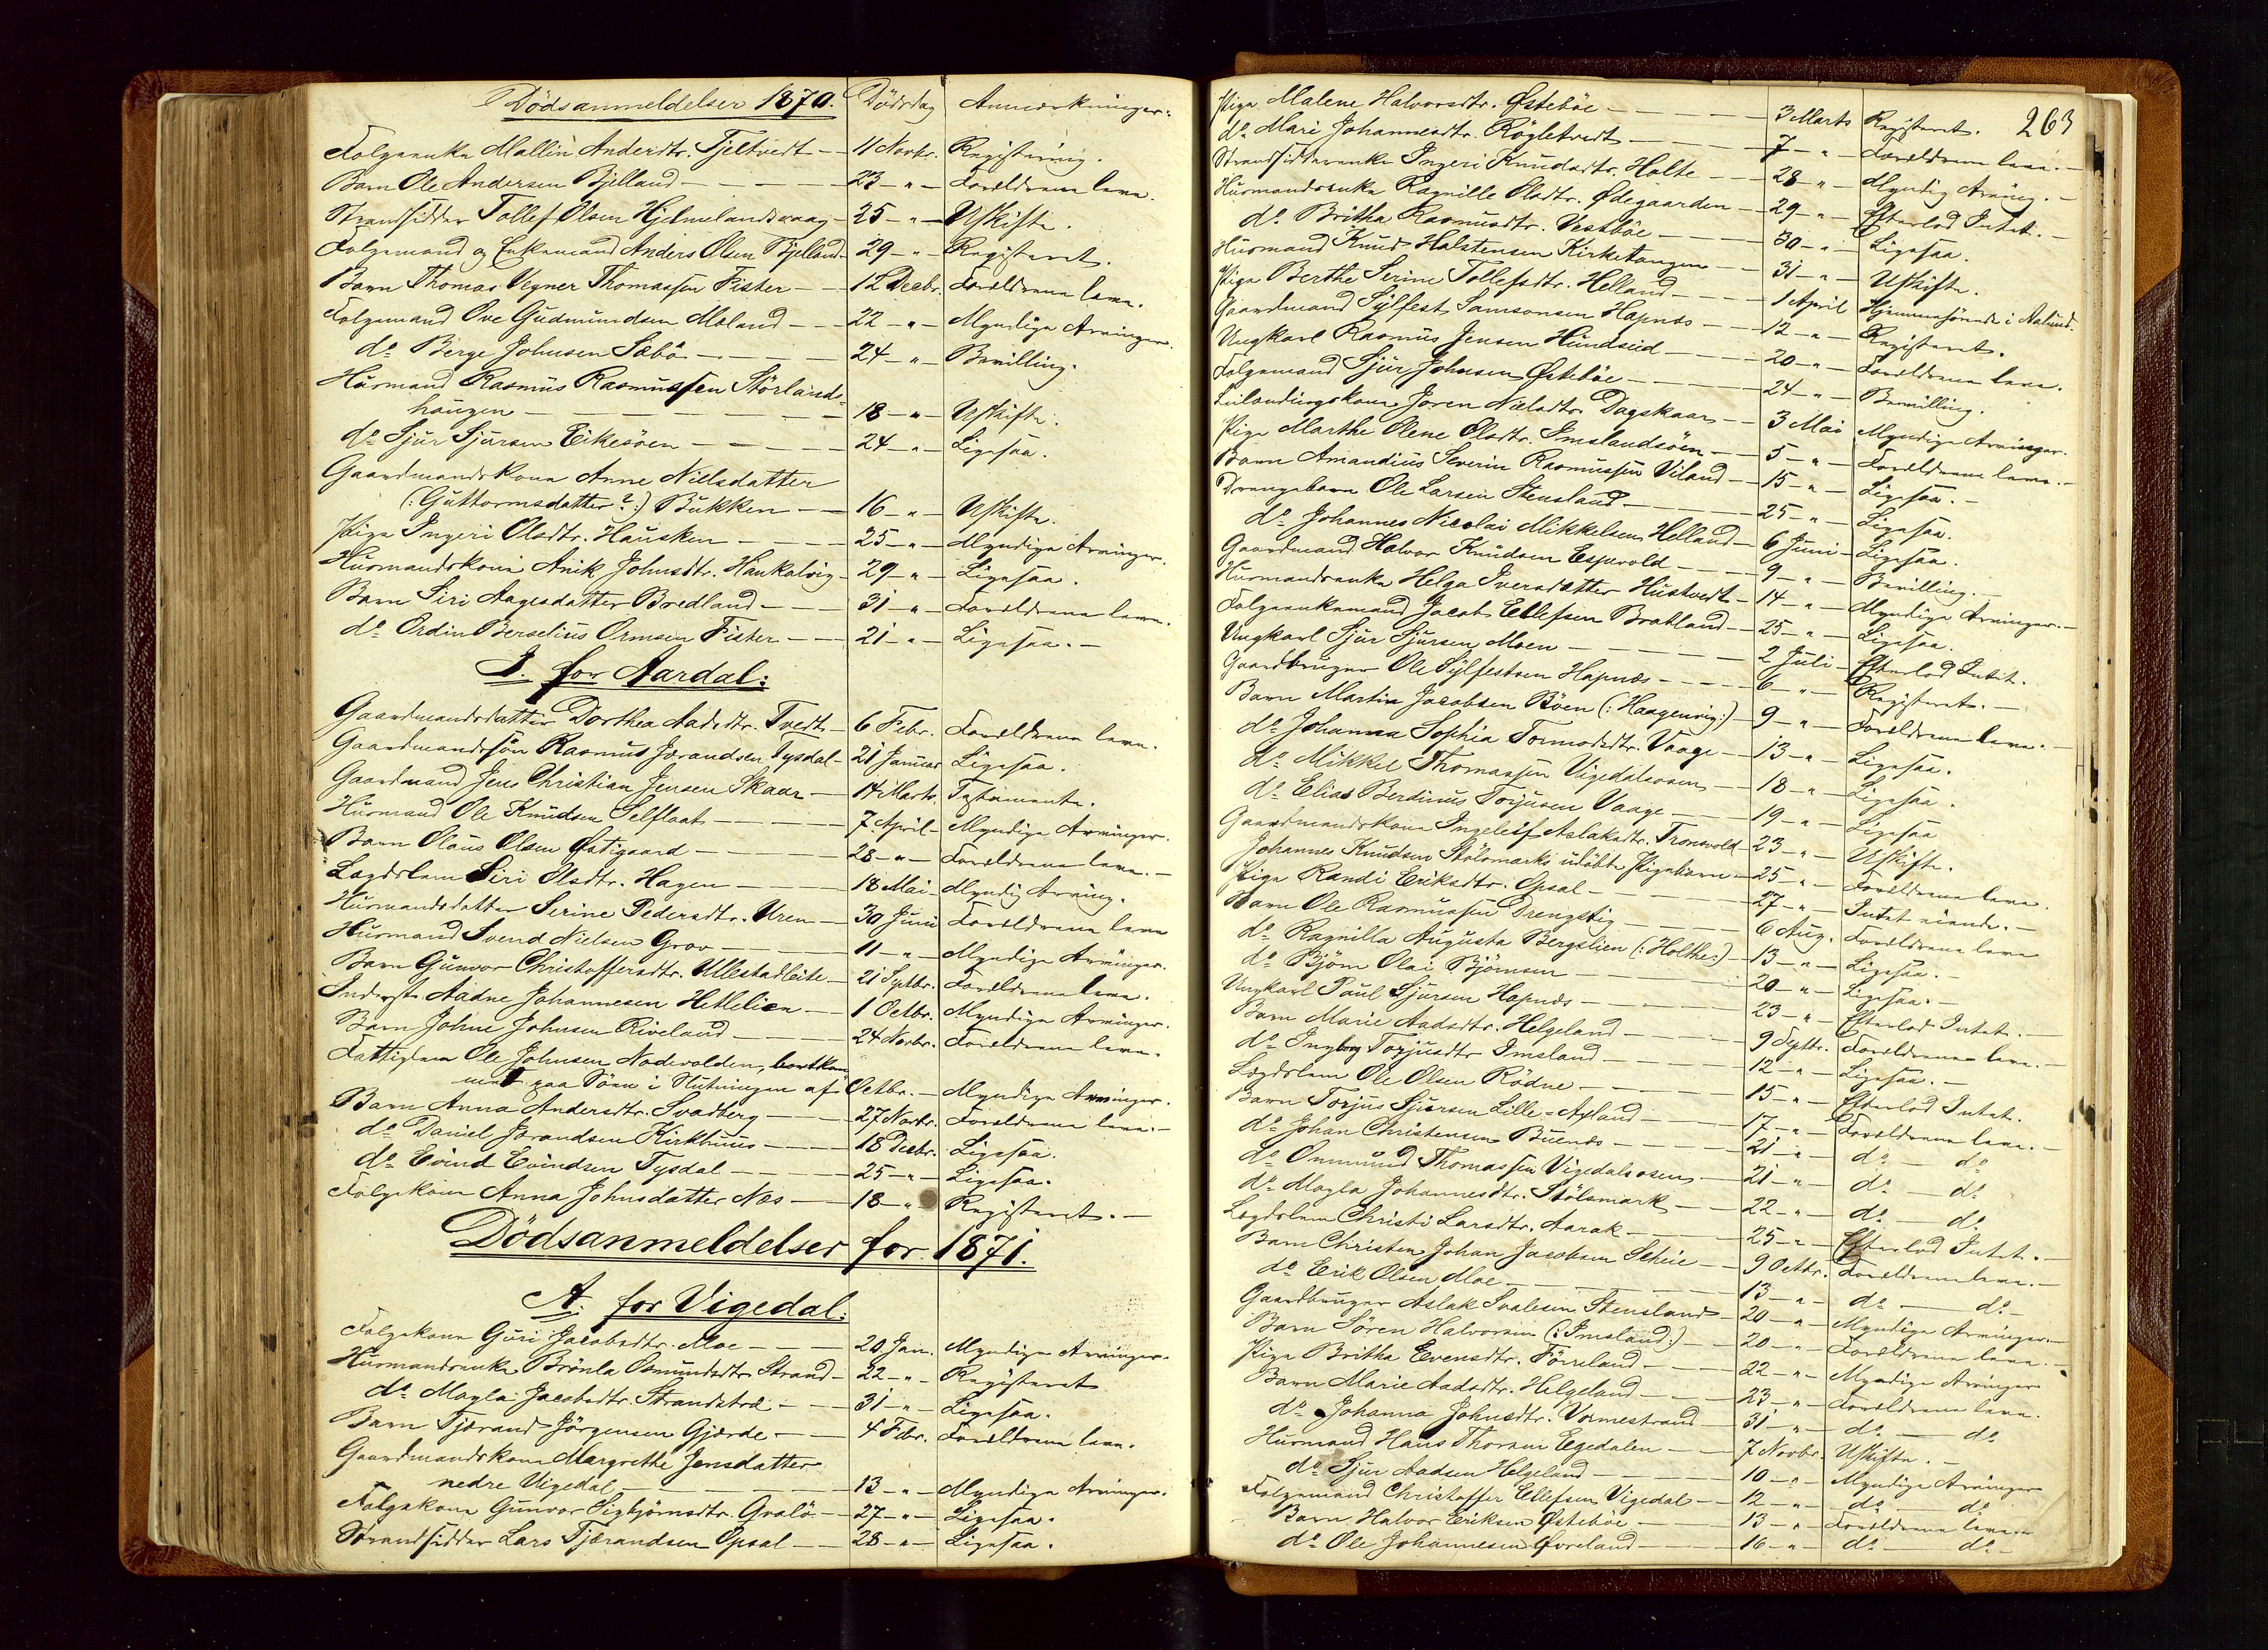 Dödsanmeldelser 1870. Dödsdag Anmærkninger.
Folgeenke Mallin Andersdtr. Tjeltvedt - 11 Novbr. Registering.
Barn Ole Andersen Bjelland - 23 - " - Forældrene leve.
Strandsidder Tollef Olsen Hjelmelandsvaag - 25 - " - Udskifte.
Folgemand og Enkemand Anders Olsen Bjelland - 29 - " - Registeret.
Barn Thomas Vegner Thomassen Fister - 12 Decbr. Forældrene leve.
Folgemand Ove Gudmundsen Meland - 22 - " - Myndige Arvinger.
do Berge Johnsen Sæbö - 24 - " - Bevilling.
Husmand Rasmus Rasmussen Störlands-
haugen - 18 - " - Udskifte.
do Sjur Sjursen Eikesöen - 24 - " - Ligesaa.
Gaardmandskone Anne Nielsdatter
(: Guttormsdatter ? :) Bukken - 16 - " - Udskifte.
Pige Ingeri Olsdtr. Hausken - 25 - " - Myndige Arvinger.
Husmandskone Anik Johnsdtr. Hankalvig - 29 - " - Ligesaa.
Barn Siri Aagesdatter Bredland - 31 - " - Forældrene leve.
do Ordin Berselius Ormsen Fister - 21 - " - Ligesaa. -
I. for Aardal:
Gaardmandsdatter Dorthea Aadsdtr. Tvedt - 6 Febr. Forældrene leve.
Gaardmandssön Rasmus Jörandsen Tysdal - 21 Januar Ligesaa.
Gaardmand Jens Christian Jensen Skaar - 14 Marts. Testamente.
Husmand Ole Knudsen Selflaat - 7 April - Myndige Arvinger.
Barn Olaus Olsen Östigaard - 28 - " - Forældrene leve. -
Lægdslem Siri Olsdtr. Hagen - 18 Mai - Myndig Arving.
Husmandsdatter Serine Pedersdtr. Uren - 30 Juni Forældrene leve
Husmand Svend Nielsen Grov - 11 - " - Myndige Arvinger.
Barn Gunvor Christoffersdtr. Ullestadleite - 21 Septbr. Forældrene leve.
Inderste Aadne Johannesen Hetlelien - 1 Octbr. Myndige Arvinger.
Barn Johne Johnsen Riveland - 24 Novbr. Forældrene leve.
Fattiglem Ole Johnsen Nodevolden, bortkom
met paa Söen i Slutningen af Octbr. - Myndige Arvinger.
Barn Anna Andersdtr. Svadberg - 27 Novbr. Forældrene leve. -
do Daniel Jörandsen Kirkhuus - 18 Decbr. Ligesaa.
do Evind Evindsen Tysdal - 25 - " - Ligesaa.
Folgekone Anna Johnsdatter Næs - 18 - " Registeret. -
Dödsanmeldelser for 1871.
A. for Vigedal:
Folgekone Guri Jacobsdtr. Moe - 20 Jan. Myndige Arvinger.
Husmandsenke Brönla Osmundsdtr. Strand - 22 - " - Registeret
do Magla Jacobsdtr. Strandebrö - 31 - " - Ligesaa.
Barn Tjærand Jörgensen Gjerde - 4 Febr. Forældrene leve.
Gaardmandskone Margrethe Jensdatter
nedre Vigedal - 13 - " - Myndige Arvinger.
Folgekone Gunvor Sigbjörnsdtr. Qvalö - 27 - " - Ligesaa.
Strandsidder Lars Tjærandsen Opsal - 28 - " - Ligesaa.
263
Pige Malene Halvorsdtr. Östeböe - 3 Marts Registeret.
do Mari Johannesdtr. Rögletvedt - 7 - " - Forældrene leve. -
Strandsidderenke Ingeri Knudsdtr. Holte - 28 - " - Myndig Arving. -
Husmandsenke Ragnille Olsdtr. Ödegaarden - 29 - " - Efterlod Intet. -
do Britha Rasmusdtr. Vestböe - 30 - " - Ligesaa.
Husmand Knud Halstensen Kirketangen - 31 - " - Udskifte.
Pige Berthe Serine Tollefsdtr. Helland - 1 April Hjemmehörende i Nalund.
Gaardmand Sylfest Samsonsen Hapnæs - 12 - " - Registeret.
Ungkarl Rasmus Jensen Hundseid - 20 - " - Forældrene leve.
Folgemand Sjur Johnsen Östeböe - 24 - " - Bevilling.
Leilændingskone Joren Nielsdtr. Dagskaar - 3 Mai Myndige Arvinger.
Pige Marthe Olene Olsdtr. Imslandsöen - 5 - " - Forældrene leve. -
Barn Amandius Severin Rasmussen Viland - 15 - " - Ligesaa. -
Drengebarn Ole Larsen Stensland - 25 - " - Ligesaa.
do Johannes Nicolai Mikkelsen Helland - 6 Juni - Ligesaa.
Gaardmand Halvor Knudsen Espevold - 9 - " - Bevilling. -
Husmandsenke Helga Iversdatter Hustvedt - 14 - " - Myndige Arvinger. -
Folgeenkemand Jacob Ellefsen Bratland - 25 - " - Ligesaa.
Ungkarl Sjur Sjursen Moen - 2 Juli - Efterlod Intet.
Gaardbruger Ole Sylfestsen Hapnæs - 6 - " - Registeret. -
Barn Martin Jacobsen Böen (: Haagenvig :) - 9 - " - Forældrene leve. -
do Johanna Sophia Tormodsdtr. Vaage - 13 - " - Ligesaa.
do Mikkel Thomassen Vigedalsosen - 18 - " - Ligesaa.
do Elias Berdinus Torjusen Vaage - 19 - " - Ligesaa
Gaardmandskone Ingeleif Aslaksdtr. Tronsvold - 23 - " - Udskifte.
Johannes Knudsen Stölsmarks udöbte Pigebarn - 25 - " - Forældrene leve.
Pige Randi Eriksdtr. Opsal - 27 - " - Intet eiende. -
Barn Ole Rasmussen Drengstig - 6 Aug. Forældrene leve
do Ragnilla Augusta Bergslien (: Holthe :) - 13 - " - Ligesaa. -
do Björn Olai Björnsen - 20 - " - Ligesaa. -
Ungkarl Paul Sjursen Hapnæs - 23 - " - Efterlod Intet. -
Barn Marie Aadsdtr. Helgeland - 9 Septbr. Forældrene leve. -
do Ingborg Torjusdtr. Imsland - 12 - " - Ligesaa. -
Lægdslem Ole Olsen Rödne - 15 - " - Efterlod Intet.
Barn Torjus Sjursen Lille-Axland - 17 - " - Forældrene leve. -
do Johan Christensen Buenæs - 21 - " - do - do
do Ommund Thomassen Vigedalsosen - 21 - " - do - do
do Magla Johannesdtr. Stölsmark - 22 - " - do - do
Lægdslem Christi Larsdtr. Aarak - 25 - " - Efterlod Intet. -
Barn Christen Johan Jacobsen Scheie - 9 Octbr. Forældrene leve. -
do Erik Olsen Moe - 13 - " - do - do -
Gaardbruger Aslak Svalesen Stensland - 20 - " - Myndige Arvinger. -
Barn Sören Halvorsen (: Imsland :) - 20 - " - Forældrene leve. -
Pige Britha Evensdtr. Förreland - 22 - " - Myndige Arvinger
Barn Marie Aadsdtr. Helgeland - 23 - " - Forældrene leve.
do Johanna Johnsdtr. Vormestrand - 31 - " - do - do
Husmand Hans Thorsen Egedalen - 7 Novbr. Udskifte. -
do Sjur Aadsen Helgeland - 10 - " - Myndige Arvinger
Folgemand Christoffer Ellefsen Vigedal - 12 - " - do do
Barn Halvor Eriksen Östeböe - 13 - " - Forældrene leve. -
do Ole Johannesen Övreland - 16 - " - do - do -